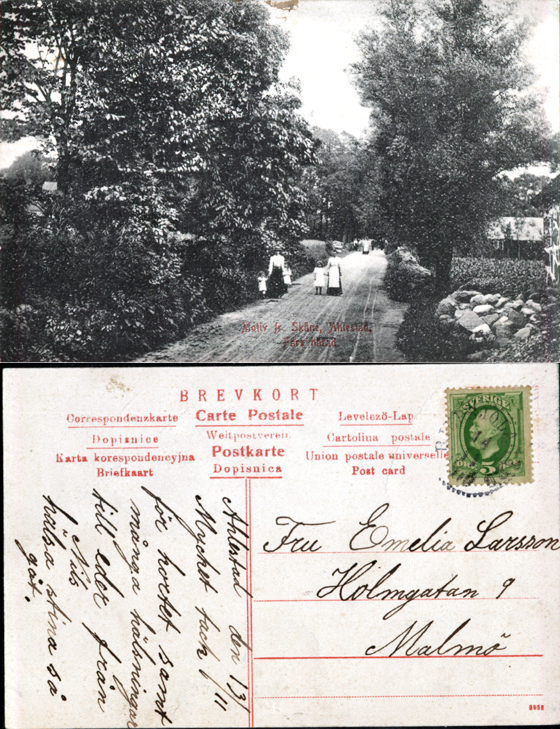 Motiv fr. Skåne, Åhlestad,
Färs härad
BREVKORT
Correspondenzkarte
Carte Postale
Levelező-Lap
Dopisnice
Weltpostverein.
Cartolina postale
Karta korespondencyjna
Postkarte
Union postale universelle
Briefkaart
Dopisnica
Post card
SVERIGE
5
Fru Emelia Larsson
Holmgatan 9
Malmö
Åhlestad den 13/11
Mycket tack
för kortet samt
många hälsningar
till eder från
Nils
hälsa stina så
gåt.